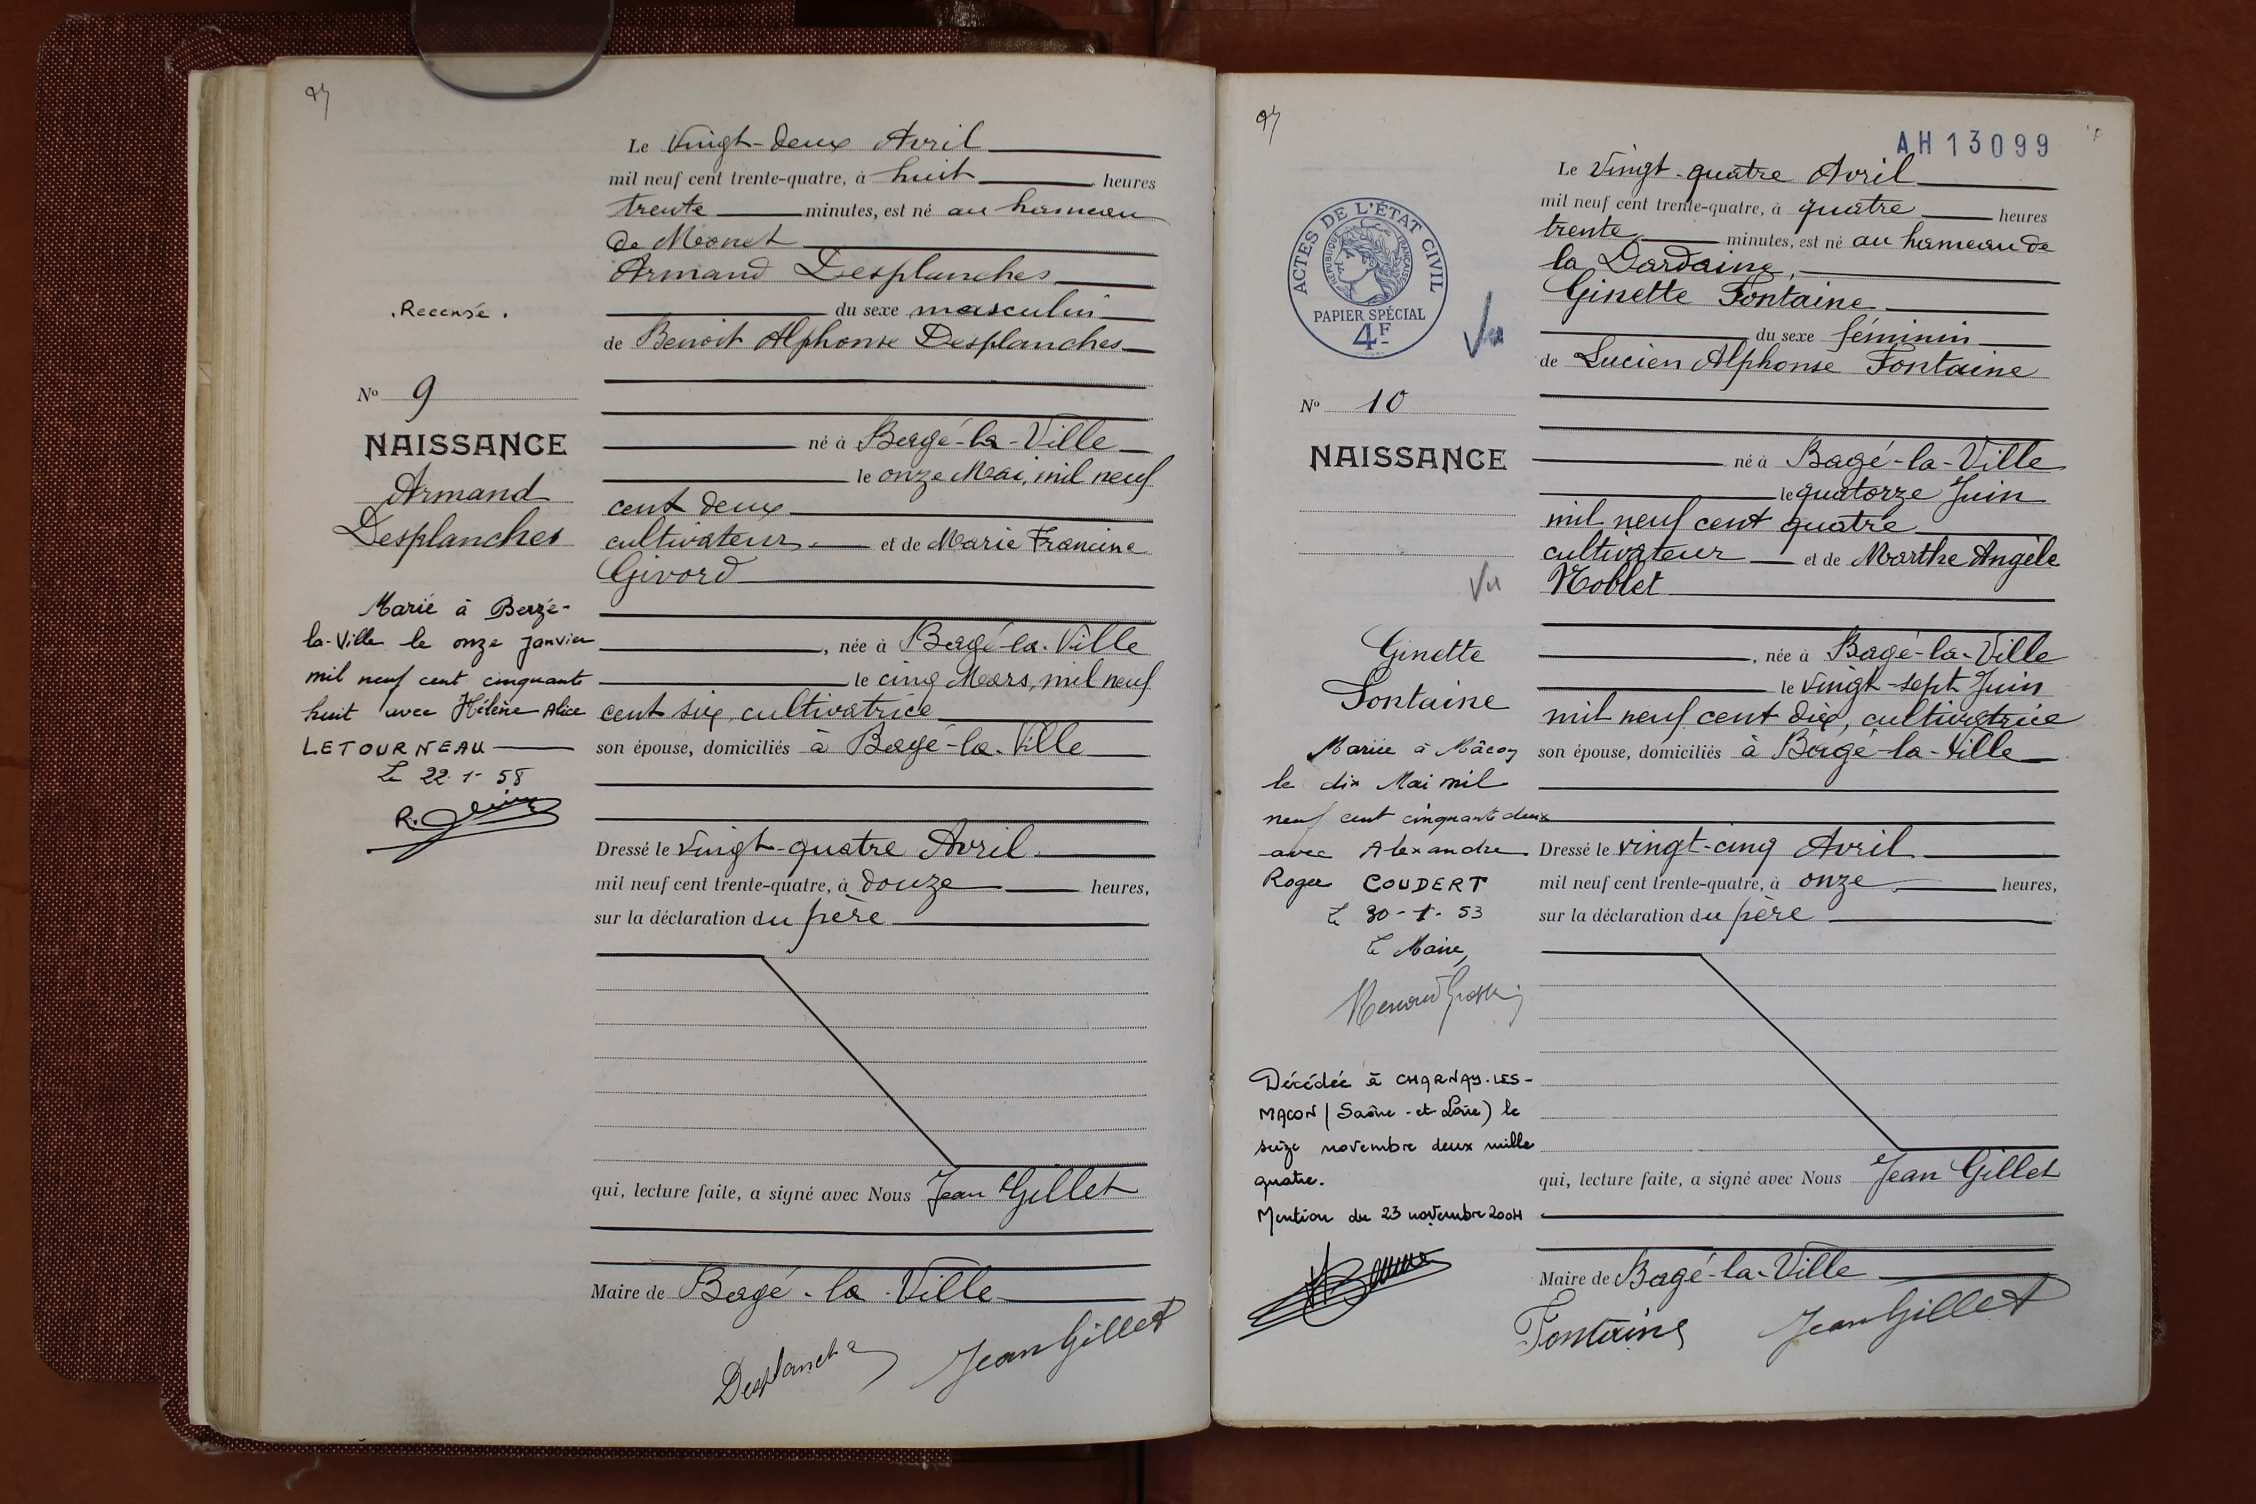 Le Vingt-deux Avril
mil neuf cent trente-quatre, à huit heures
trente minutes, est né au hameau
de Méonet
Armand Desplanches
du sexe masculin
de Benoit Alphonse Desplanches
né à Bagé-la-Ville
le onze Mai, mil neuf
cent deux
cultivateur et de Marie Francine
Givord
, née à Bagé-la-Ville
le cinq Mars, mil neuf
cent six, cultivatrice
son épouse, domiciliés à Bagé-la-Ville
Dressé le vingt-quatre Avril
mil neuf cent trente-quatre, à douze heures,
sur la déclaration du père
qui, lecture faite, a signé avec Nous Jean Gillet
Maire de Bagé-la-Ville
Desplanche
Jean Gillet
. Recensé .
No 9
NAISSANCE
Armand
Desplanches
Marié à Berzé-
la-Ville le onze Janvier
mil neuf cent cinquante
huit avec Hélène Alice
LETOURNEAU
Le 22-1-58
AH 13099
Le Vingt-quatre Avril
mil neuf cent trente-quatre, à quatre heures
trente minutes, est né au hameau de
la Dardaine,
Ginette Fontaine
du sexe féminin
de Lucien Alphonse Fontaine
né à Bagé-la-Ville
le quatorze Juin
mil neuf cent quatre
cultivateur et de Marthe Angèle
Noblet
, née à Bagé-la-Ville
le vingt-sept Juin
mil neuf cent dix, cultivatrice
son épouse, domiciliés à Bagé-la-Ville
Dressé le vingt-cinq Avril
mil neuf cent trente-quatre, à onze heures,
sur la déclaration du père
qui, lecture faite, a signé avec Nous Jean Gillet
Maire de Bagé-la-Ville
Fontaine
Jean Gillet
ACTES DE L'ÉTAT CIVIL
RÉPUBLIQUE FRANÇAISE
PAPIER SPÉCIAL
4F
Vu
No 10
NAISSANCE
Vu
Ginette
Fontaine
Mariée à Mâcon
le dix Mai mil
neuf cent cinquante deux
avec Alexandre
Roger COUDERT
Le 30-1-53
Le Maire,
Décédée à CHARNAY-LES-
MACON (Saône-et-Loire) le
seize novembre deux mille
quatre.
Mention du 23 novembre 2004